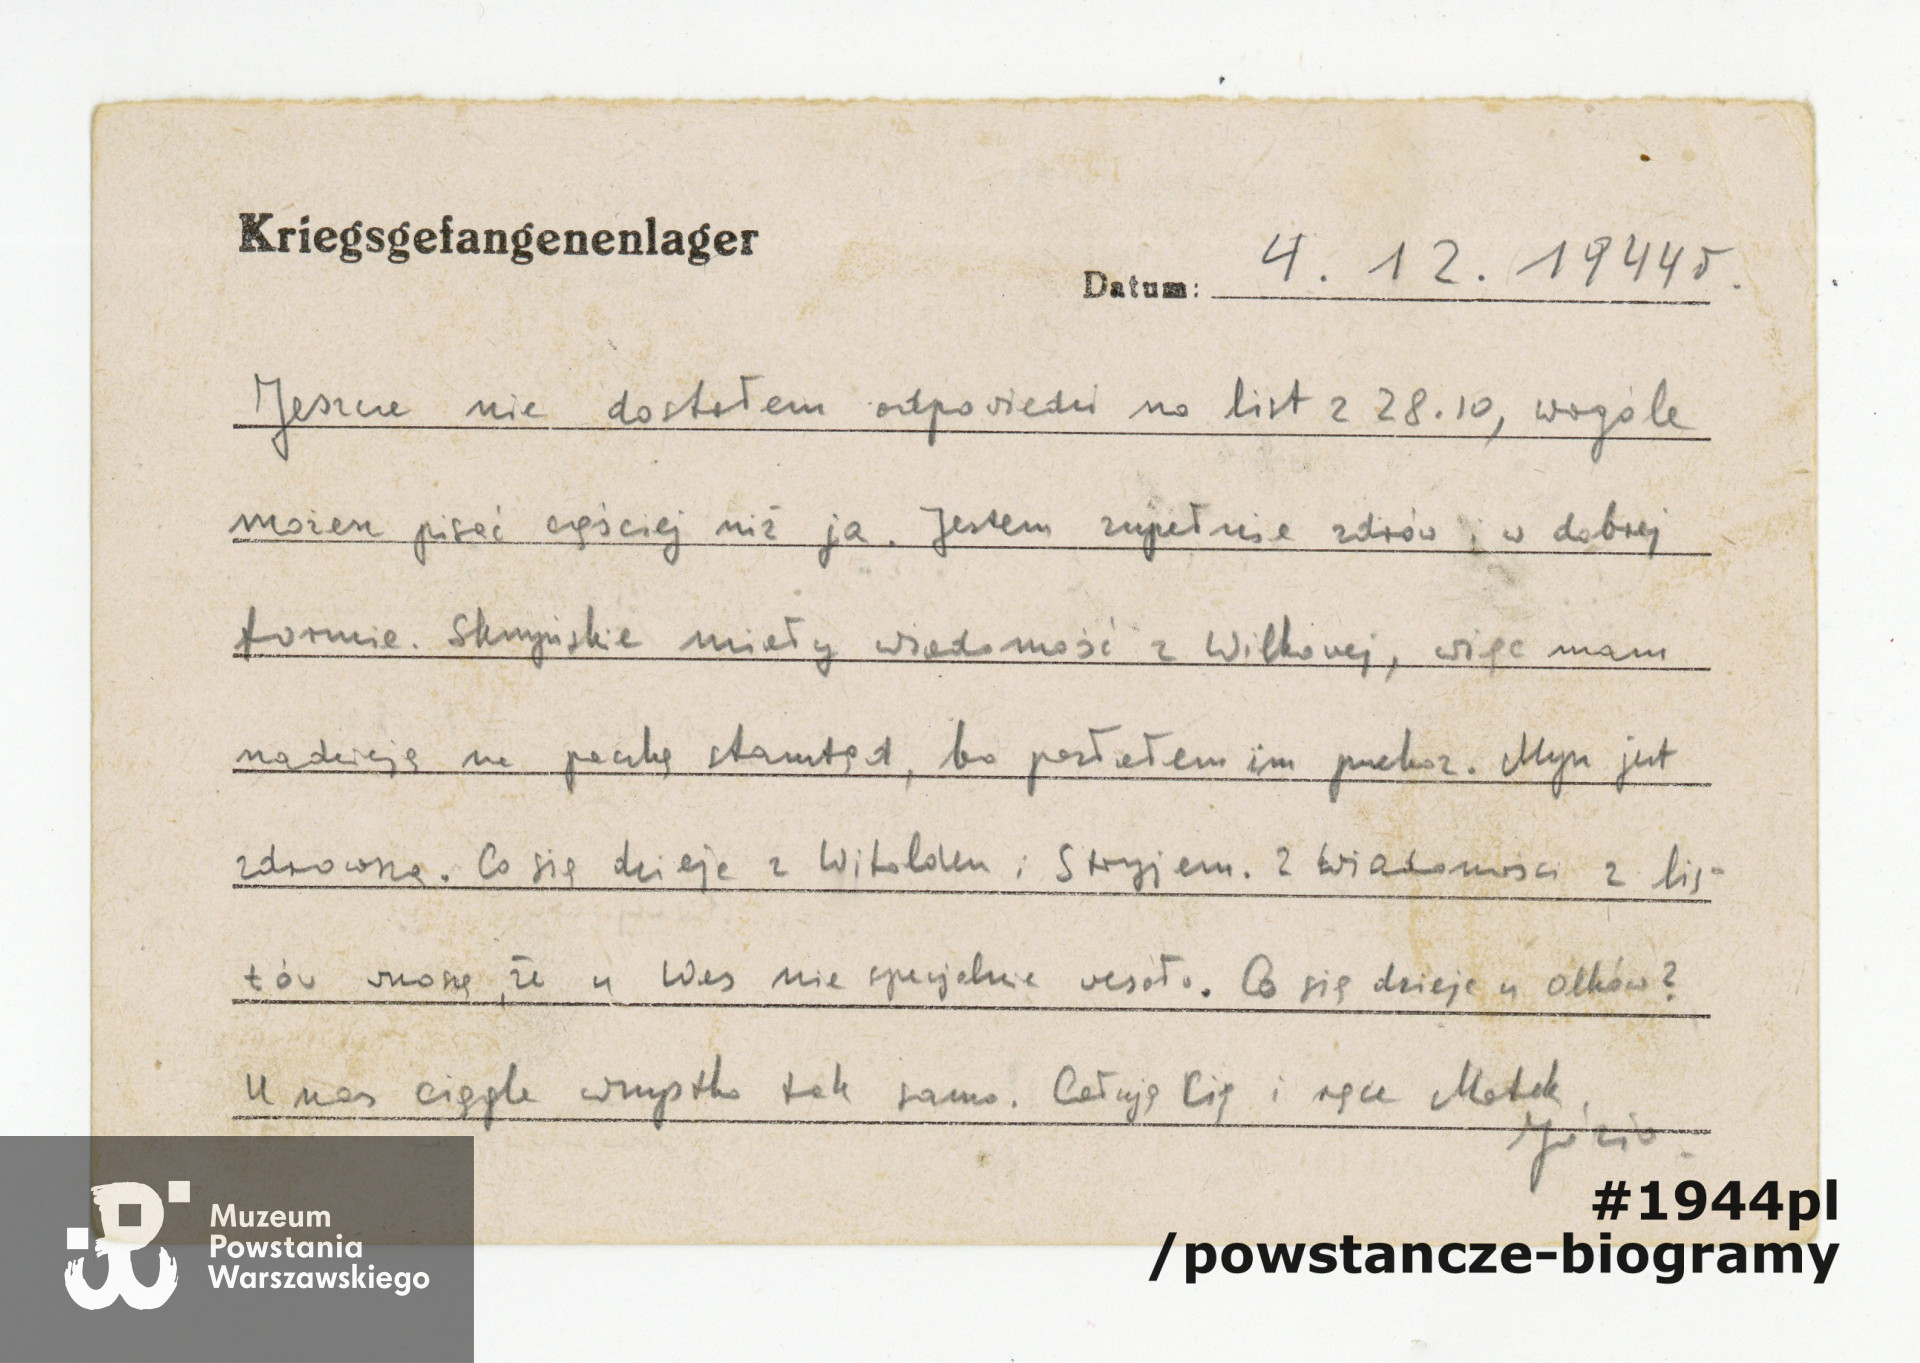 Kriegsgefangenenlager
Datum: 4. 12. 1944 r.
Jeszcze nie dostałem odpowiedzi na list z 28.10, wogóle
możesz pisać częściej niż ja. Jestem zupełnie zdrów i w dobrej
formie. Skrzyńskie miały wiadomość z Wilkowej, więc mam
nadzieję na paczkę stamtąd, bo posłałem im przekaz. jest
zdrowszą. Co się dzieje z Witoldem i Stryjem. Z wiadomości z lis-
tów wnoszę, że u Was nie specjalnie wesoło. Co się dzieje u Olków?
U nas ciągle wszystko tak samo. Całuję Cię i ręce Matek.
Józio.
Muzeum
Powstania
Warszawskiego
#1944pl
/powstancze-biogramy